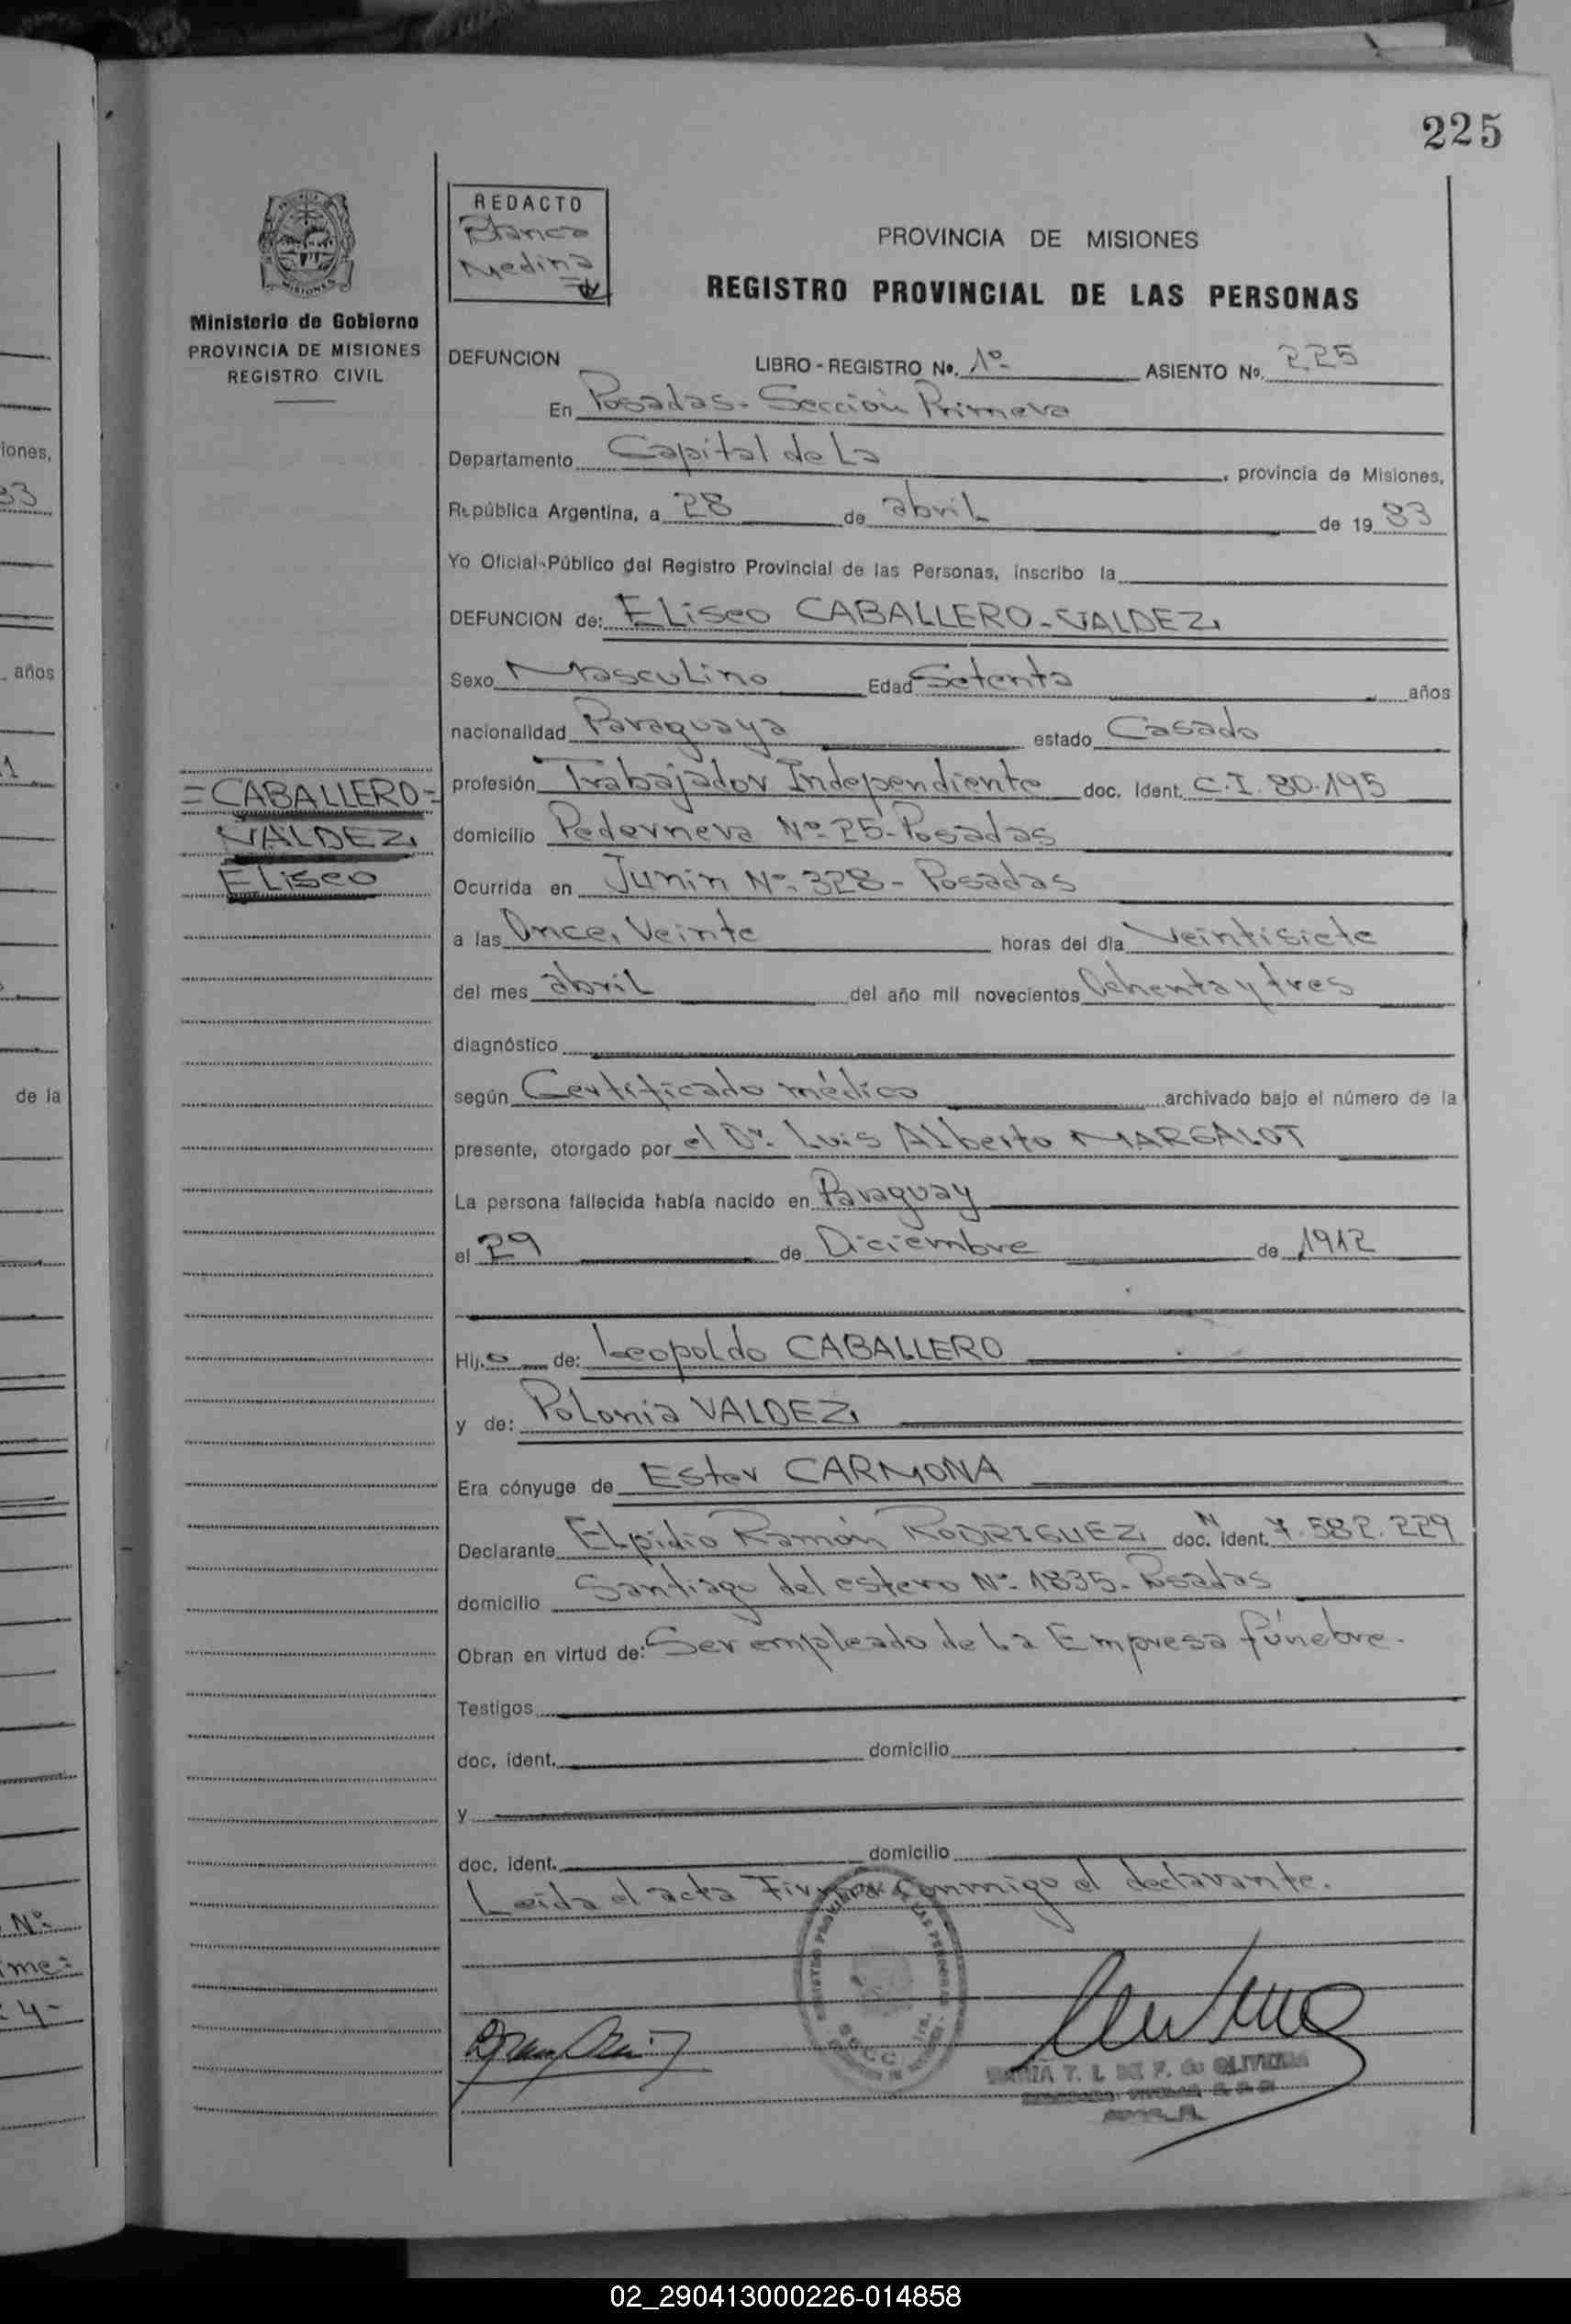 225
REDACTO
Blanca
Medina
PROVINCIA DE MISIONES
REGISTRO PROVINCIAL DE LAS PERSONAS
MISIONES
Ministerio de Gobierno
PROVINCIA DE MISIONES
REGISTRO CIVIL
DEFUNCION LIBRO - REGISTRO No. 1º ASIENTO No. 225
En Posadas - Sección Primera
Departamento Capital de La , provincia de Misiones,
República Argentina, a 28 de abril de 19 83
Yo Oficial Público del Registro Provincial de las Personas, inscribo la
DEFUNCION de: ELiseo CABALLERO-VALDEZ
Sexo Masculino Edad Setenta años
nacionalidad Paraguaya estado Casado
profesión Trabajador Independiente doc. Ident. C.I. 80.195
domicilio Pedernera Nº 25-Posadas
Ocurrida en Junín Nº 328 - Posadas
a las Once, Veinte horas del día Veintisiete
del mes abril del año mil novecientos Ochenta y tres
diagnóstico
según Certificado médico archivado bajo el número de la
presente, otorgado por el Dr. Luis Alberto MARGALOT
La persona fallecida había nacido en Paraguay
el 29 de Diciembre de 1912
Hij o de: Leopoldo CABALLERO
y de: PoLonia VALDEZ
Era cónyuge de Ester CARMONA
Declarante ELpidio Ramón RODRIGUEZ doc. N ident. 7.582.229
domicilio Santiago del estero Nº 1835. Posadas
Obran en virtud de: Ser empleado de La Empresa fúnebre.
Testigos
doc. ident. domicilio
y
doc. ident. domicilio
Leída el acta Firma Conmigo el declarante.
=CABALLERO=
VALDEZ
ELiseo
MARIA T. L. DE F. de OLIVEIRA
iones,
83
años
1
de la
Nº
me=
4-
02_290413000226-014858